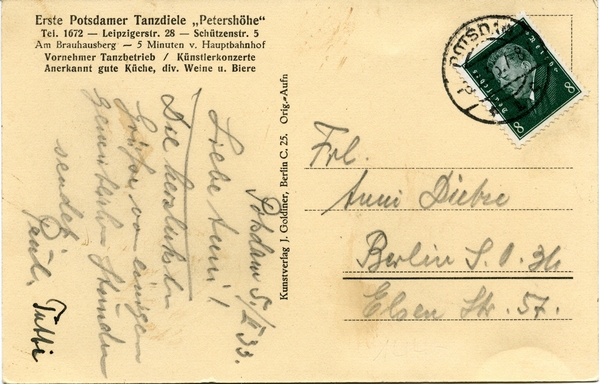 Erste Potsdamer Tanzdiele „Petershöhe“
Tel. 1672 — Leipzigerstr. 28 — Schützenstr. 5
Am Brauhausberg — 5 Minuten v. Hauptbahnhof
Vornehmer Tanzbetrieb / Künstlerkonzerte
Anerkannt gute Küche, div. Weine u. Biere
Potsdam 5/II 33.
Liebe Anni!
Die herzlichsten
Grüße von einigen
gemütlichen Stunden
sendet
Paul.
Kunstverlag J. Goldiner, Berlin C. 25. Orig.-Aufn
POTSDAM
8
8
Frl.
Anni Diebre
Berlin S. O. 36
Elsen Str. 57.